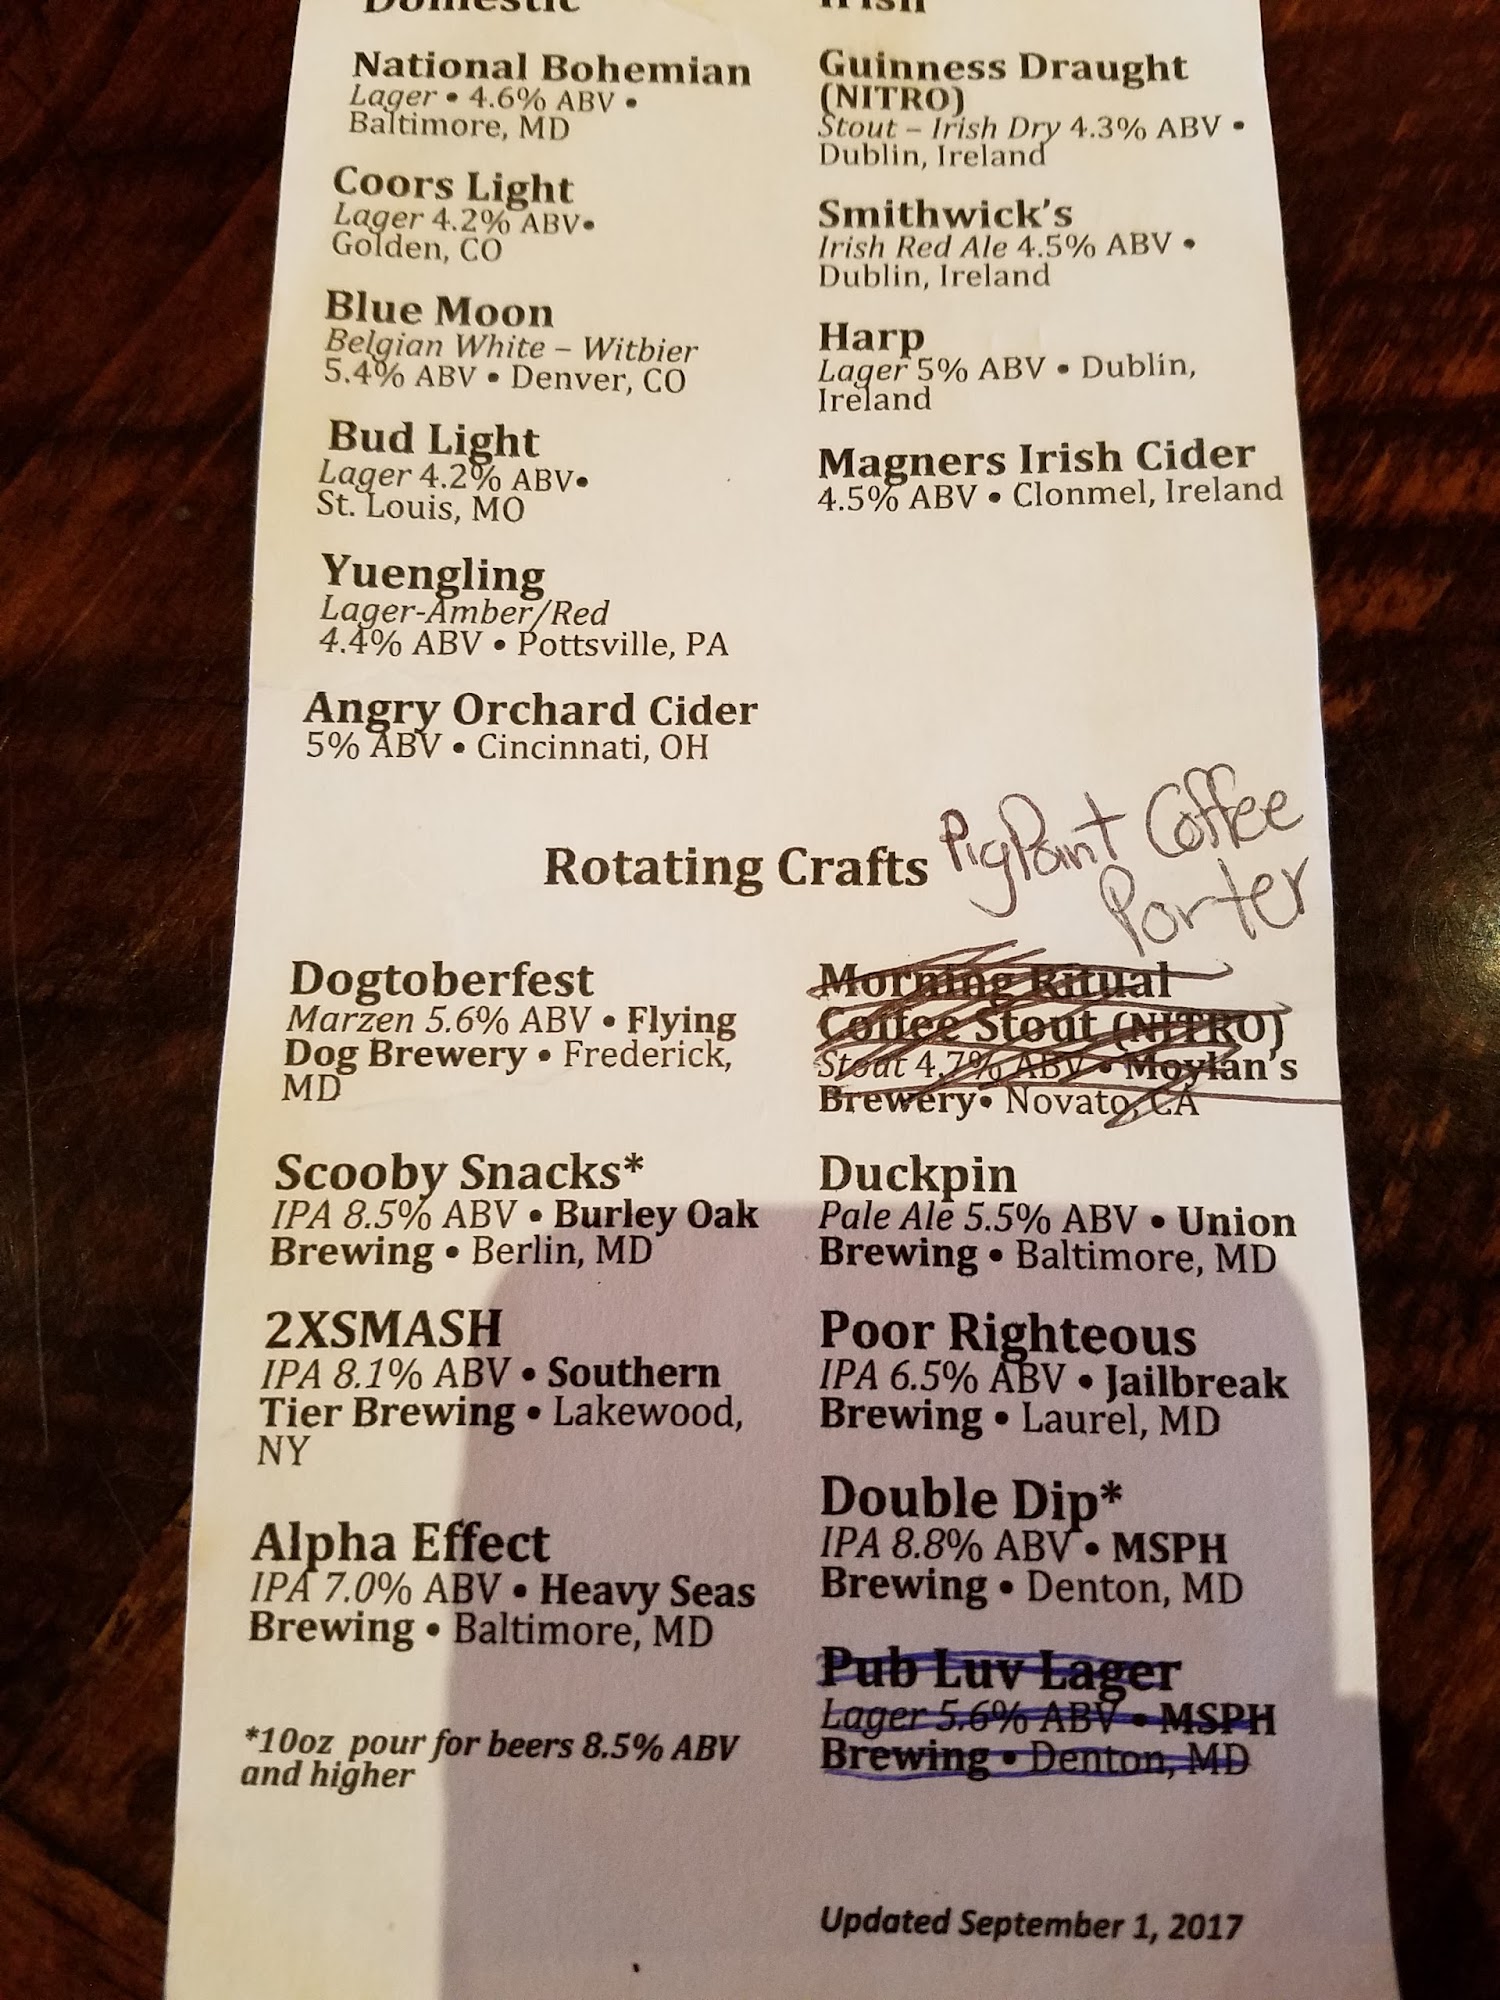 Domestic
National Bohemian
Lager • 4.6% ABV •
Baltimore, MD
Coors Light
Lager 4.2% ABV•
Golden, CO
Blue Moon
Belgian White – Witbier
5.4% ABV • Denver, CO
Bud Light
Lager 4.2% ABV•
St. Louis, MO
Yuengling
Lager-Amber/Red
4.4% ABV • Pottsville, PA
Angry Orchard Cider
5% ABV • Cincinnati, OH
Irish
Guinness Draught
(NITRO)
Stout – Irish Dry 4.3% ABV •
Dublin, Ireland
Smithwick's
Irish Red Ale 4.5% ABV •
Dublin, Ireland
Harp
Lager 5% ABV • Dublin,
Ireland
Magners Irish Cider
4.5% ABV • Clonmel, Ireland
Rotating Crafts
PigPoint Coffee
Porter
Dogtoberfest
Marzen 5.6% ABV • Flying
Dog Brewery • Frederick,
MD
Scooby Snacks*
IPA 8.5% ABV • Burley Oak
Brewing • Berlin, MD
2XSMASH
IPA 8.1% ABV • Southern
Tier Brewing • Lakewood,
NY
Alpha Effect
IPA 7.0% ABV • Heavy Seas
Brewing • Baltimore, MD
*10oz pour for beers 8.5% ABV
and higher
Morning Ritual
Coffee Stout (NITRO)
Stout 4.7% ABV • Moylan's
Brewery• Novato, CA
Duckpin
Pale Ale 5.5% ABV • Union
Brewing • Baltimore, MD
Poor Righteous
IPA 6.5% ABV • Jailbreak
Brewing • Laurel, MD
Double Dip*
IPA 8.8% ABV • MSPH
Brewing • Denton, MD
Pub Luv Lager
Lager 5.6% ABV • MSPH
Brewing • Denton, MD
Updated September 1, 2017